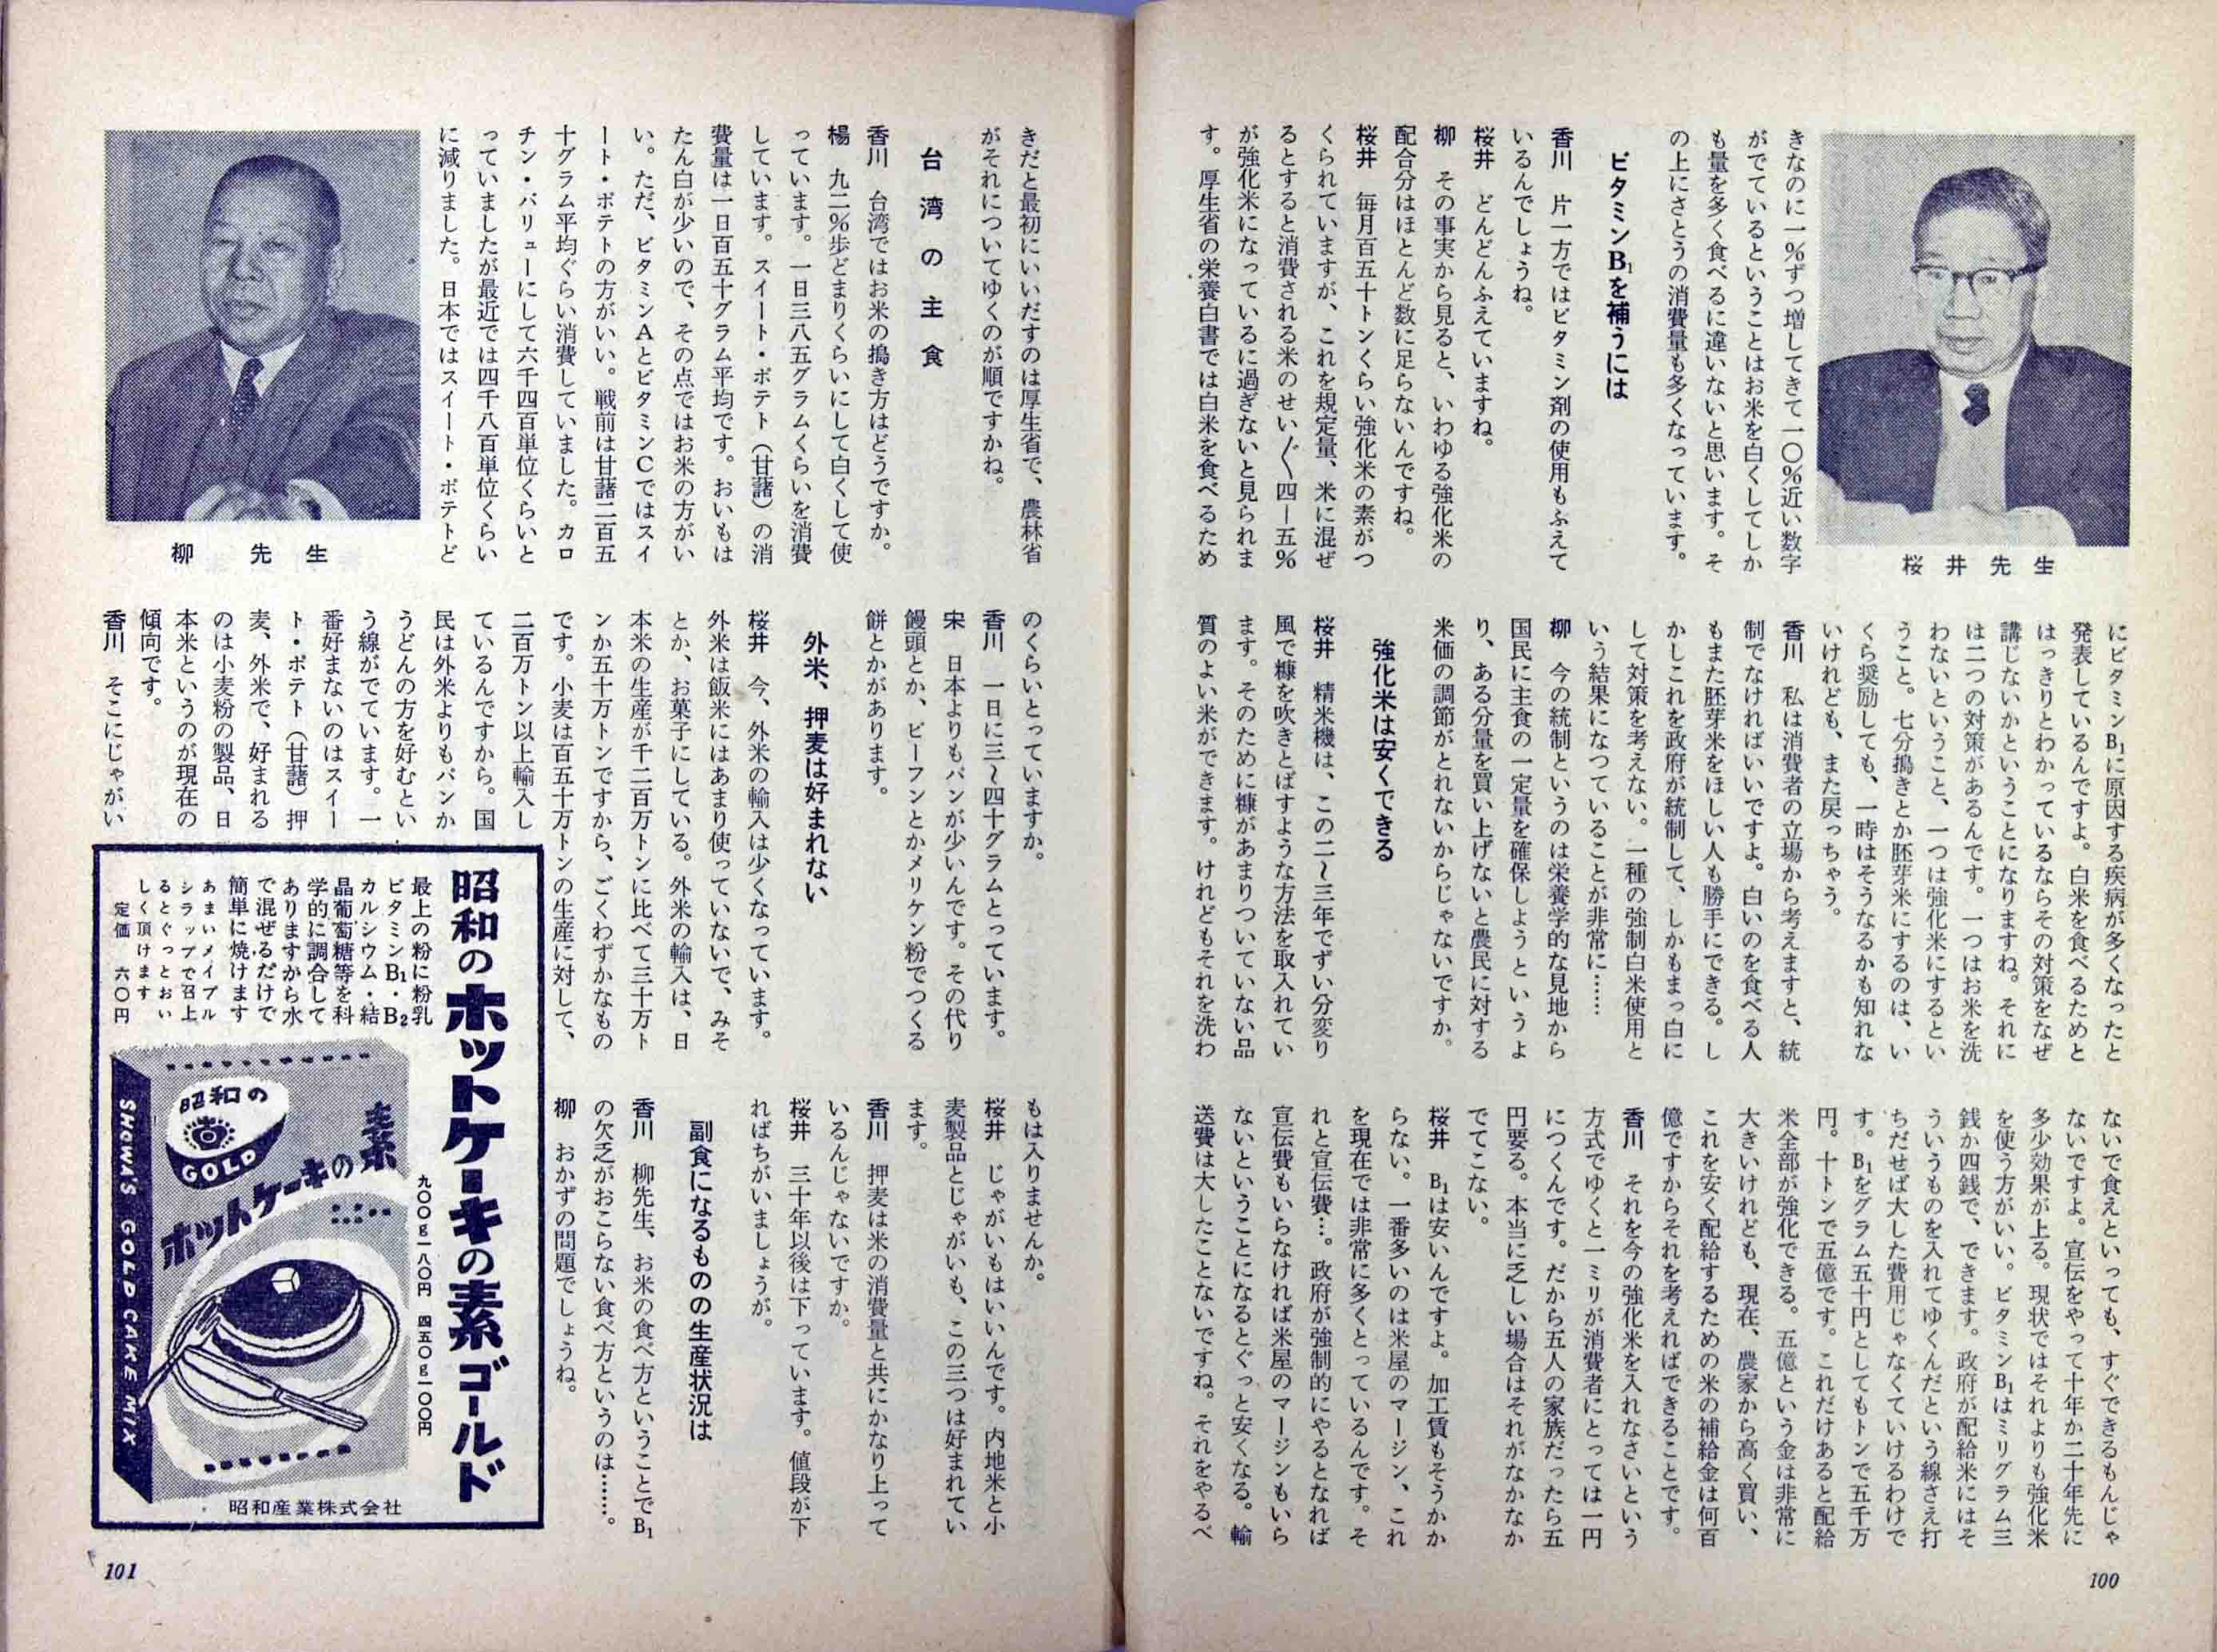 桜井先生
きなのに一％ずつ増してきて一〇％近い数字
がでているということはお米を白くしてしか
も量を多く食べるに違いないと思います。そ
の上にさとうの消費量も多くなっています。
ビタミンB₁を補うには
香川　片一方ではビタミン剤の使用もふえて
いるんでしょうね。
桜井　どんどんふえていますね。
柳　その事実から見ると、いわゆる強化米の
配合分はほとんど数に足らないんですね。
桜井　毎月百五十トンくらい強化米の素がつ
くられていますが、これを規定量、米に混ぜ
るとすると消費される米のせい〴〵四－五％
が強化米になっているに過ぎないと見られま
す。厚生省の栄養白書では白米を食べるため
にビタミンB₁に原因する疾病が多くなったと
発表しているんですよ。白米を食べるためと
はっきりとわかっているならその対策をなぜ
講じないかということになりますね。それに
は二つの対策があるんです。一つはお米を洗
わないということ、一つは強化米にするとい
うこと。七分搗きとか胚芽米にするのは、い
くら奨励しても、一時はそうなるかも知れな
いけれども、また戻っちゃう。
香川　私は消費者の立場から考えますと、統
制でなければいいですよ。白いのを食べる人
もまた胚芽米をほしい人も勝手にできる。し
かしこれを政府が統制して、しかもまっ白に
して対策を考えない。一種の強制白米使用と
いう結果になつていることが非常に……
柳　今の統制というのは栄養学的な見地から
国民に主食の一定量を確保しようというよ
り、ある分量を買い上げないと農民に対する
米価の調節がとれないからじゃないですか。
強化米は安くできる
桜井　精米機は、この二～三年でずい分変り
風で糠を吹きとばすような方法を取入れてい
ます。そのために糠があまりついていない品
質のよい米ができます。けれどもそれを洗わ
ないで食えといっても、すぐできるもんじゃ
ないですよ。宣伝をやって十年か二十年先に
多少効果が上る。現状ではそれよりも強化米
を使う方がいい。ビタミンB₁はミリグラム三
銭か四銭で、できます。政府が配給米にはそ
ういうものを入れてゆくんだという線さえ打
ちだせば大した費用じゃなくていけるわけで
す。B₁をグラム五十円としてもトンで五千万
円。十トンで五億です。これだけあると配給
米全部が強化できる。五億という金は非常に
大きいけれども、現在、農家から高く買い、
これを安く配給するための米の補給金は何百
億ですからそれを考えればできることです。
香川　それを今の強化米を入れなさいという
方式でゆくと一ミリが消費者にとっては一円
につくんです。だから五人の家族だったら五
円要る。本当に乏しい場合はそれがなかなか
でてこない。
桜井　B₁は安いんですよ。加工賃もそうかか
らない。一番多いのは米屋のマージン、これ
を現在では非常に多くとっているんです。そ
れと宣伝費…。政府が強制的にやるとなれば
宣伝費もいらなければ米屋のマージンもいら
ないということになるとぐっと安くなる。輸
送費は大したことないですね。それをやるべ
100
きだと最初にいいだすのは厚生省で、農林省
がそれについてゆくのが順ですかね。
台湾の主食
香川　台湾ではお米の搗き方はどうですか。
楊　九二％歩どまりくらいにして白くして使
っています。一日三八五グラムくらいを消費
しています。スイート・ポテト（甘藷）の消
費量は一日百五十グラム平均です。おいもは
たん白が少いので、その点ではお米の方がい
い。ただ、ビタミンAとビタミンCではスイ
ート・ポテトの方がいい。戦前は甘藷二百五
十グラム平均ぐらい消費していました。カロ
チン・バリューにして六千四百単位くらいと
っていましたが最近では四千八百単位くらい
に減りました。日本ではスイート・ポテトど
柳先生
のくらいとっていますか。
香川　一日に三～四十グラムとっています。
宋　日本よりもパンが少いんです。その代り
饅頭とか、ビーフンとかメリケン粉でつくる
餅とかがあります。
外米、押麦は好まれない
桜井　今、外米の輸入は少くなっています。
外米は飯米にはあまり使っていないで、みそ
とか、お菓子にしている。外米の輸入は、日
本米の生産が千二百万トンに比べて三十万ト
ンか五十万トンですから、ごくわずかなもの
です。小麦は百五十万トンの生産に対して、
二百万トン以上輸入し
ているんですから。国
民は外米よりもパンか
うどんの方を好むとい
う線がでています。一
番好まないのはスイー
ト・ポテト（甘藷）押
麦、外米で、好まれる
のは小麦粉の製品、日
本米というのが現在の
傾向です。
香川　そこにじゃがい
もは入りませんか。
桜井　じゃがいもはいいんです。内地米と小
麦製品とじゃがいも、この三つは好まれてい
ます。
香川　押麦は米の消費量と共にかなり上って
いるんじゃないですか。
桜井　三十年以後は下っています。値段が下
ればちがいましょうが。
副食になるものの生産状況は
香川　柳先生、お米の食べ方ということでB₁
の欠乏がおこらない食べ方というのは……。
柳　おかずの問題でしょうね。
昭和のホットケーキの素ゴールド
最上の粉に粉乳
ビタミンB₁・B₂
カルシウム・結
晶葡萄糖等を科
学的に調合して
ありますから水
で混ぜるだけで
簡単に焼けます
あまいメイプル
シラップで召上
るとぐっとおい
しく頂けます
定価　六〇円
九〇〇g一八〇円　四五〇g一〇〇円
昭和の
GOLD
ホットケーキの素
SHOWA'S GOLD CAKE MIX
昭和産業株式会社
101